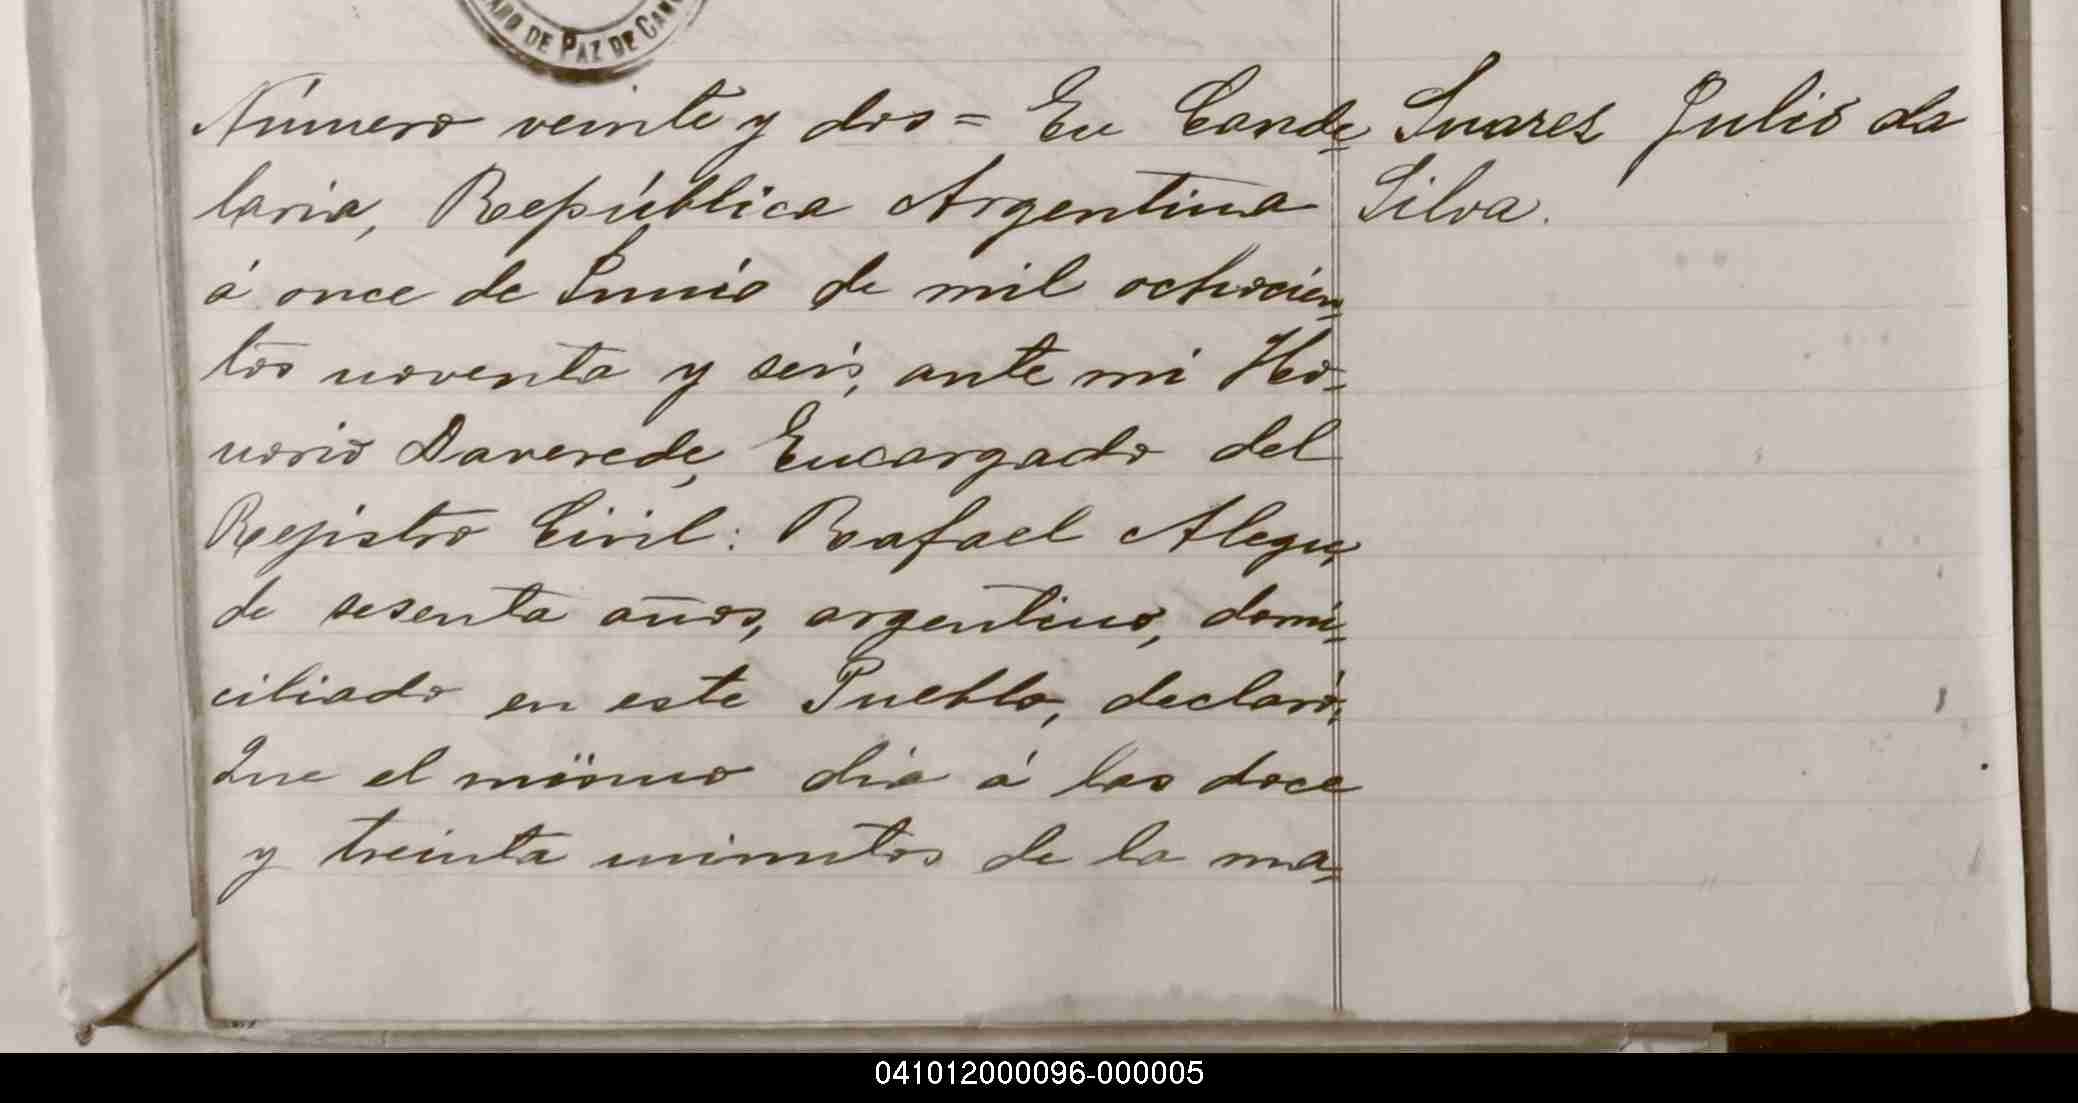 DE PAZ DE CAN
Número veinte y dos = En Cande=
laria, República Argentina
á once de Junio de mil ochocien=
tos noventa y seis, ante mi Ho=
norio Daverede, Encargado del
Registro Civil: Rafael Alegre,
de sesenta años, argentino, domi=
ciliado en este Pueblo, declaró:
Que el mismo dia á las doce
y treinta minutos de la ma=
Suares Julio da
Silva.
041012000096-000005